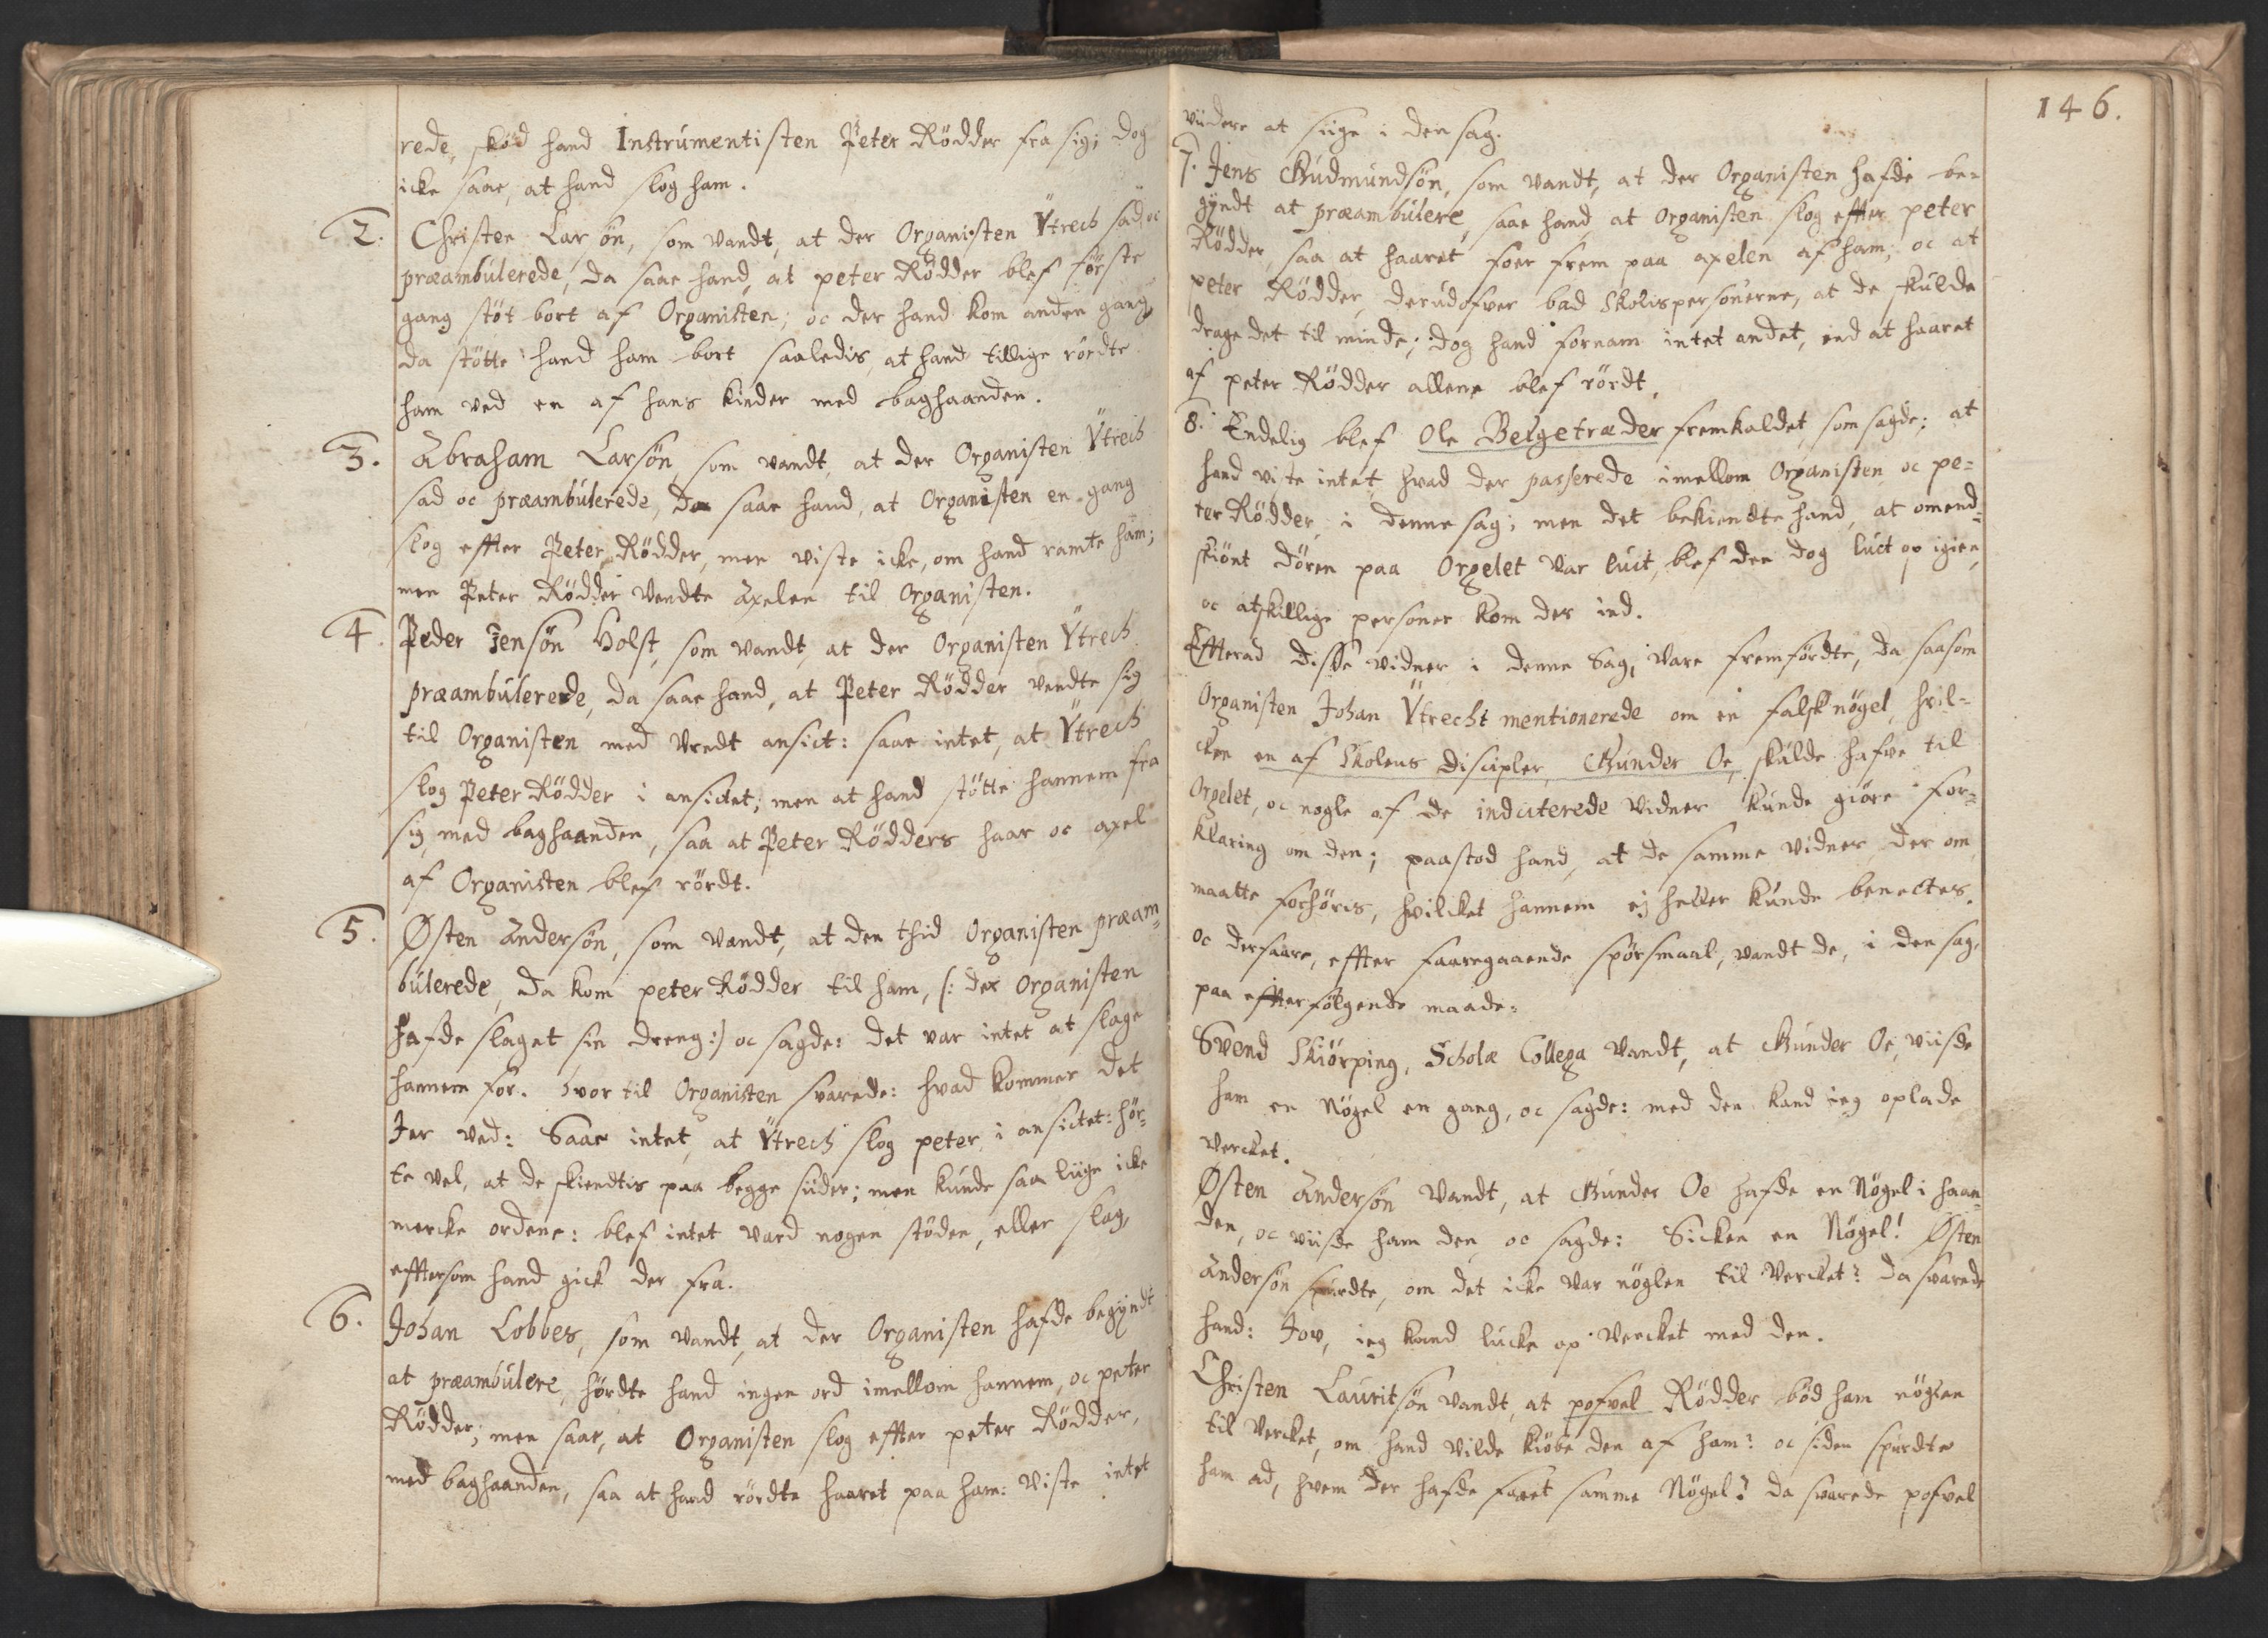 rede, skød hand Instrumentisten Peter Rödder fra sig; dog
icke saae, at hand slog ham.
2. Christen Larsön, som vandt, at der Organisten Ÿtrech sad, oc
præambúlerede, da saae hand, at peter Rödder blef förste
gang stöt bort af Organisten; oc der hand kom anden gang,
da stötte hand ham bort saaledis, at hand tillige rördte
ham ved en af hans kinder med baghaanden.
3. Abraham Larsön, som vandt, at der Organisten Ÿtrech
sad oc præambúlerede, da saae hand, at Organisten en gang
slog effter Peter Rödder, men viste icke, om hand ramte ham;
men Peter Rödder vendte Axelen til Organisten.
4. Peder Jensön Holst, som vandt, at der Organisten Ÿtrech
præambúlerede, da saae hand, at Peter Rödder vendte sig
til Organisten med Vredt ansict: saae intet, at Ÿtrech
slog Peter Rödder i ansictet; men at hand stötte hannem fra
sig med baghaanden, saa at Peter Rödders haar oc axel
af Organisten blef rördt.
5. Østen Andersön, som vandt, at den thid Organisten præam=
búlerede, da kom peter Rödder til ham, (: der Organisten
hafde slaget sin dreng:) oc sagde: det var intet at slage
hannem for. hvor til Organisten svarede: hvad kommer det
Jer ved: Saae intet, at Ÿtrech slog peter i ansictet: hör=
te vel, at de skiendtis paa begge siider; men kunde saa liige icke
mercke ordene: blef intet vard nogen stöden, eller slag,
efftersom hand gick der fra.
6. Johan Lobbes, som vandt, at der Organisten hafde begÿndt
at præambúlere, hørdte hand ingen ord imellom hannem, oc peter
Rödder; men saae, at Organisten slog effter peter Rödder,
med baghaanden, saa at hand rördte haaret paa ham: viste intet
146.
viidere at siige i den sag.
7. Jens Gudmundsön, som vandt, at der Organisten hafde be=
gÿndt at præambúlere, saae hand, at Organisten slog effter peter
Rödder, saa at haaret foer frem paa axelen af ham; oc at
peter Rödder, derudofver bad Skolispersonerne, at de skulde
drage det til minde; dog hand fornam intet andet, end at haaret
af peter Rödder allene blef rördt.
8. Endelig blef Ole Belgetræder fremkaldet, som sagde: at
hand viste intet, hvad der passerede imellom Organisten oc pe=
ter Rödder, i denne sag; men det bekiendte hand, at omend=
skiönt Dören paa Orgelet var luct, blef den dog luct op igien,
oc atskillige personer kom der ind.
Effterad disse vidner i denne Sag, vare fremfördte, da saasom
Organisten Johan Ÿtrecht mentionerede om en falsk nögel, hvil=
cken en af Skolens Discipler, Gunder Oe, skulde hafve til
Orgelet, oc nogle af de indciterede Vidner kunde giöre for=
klaring om den; paastod hand, at de samme vidner der om
maatte forhöris, hvilcket hannem ej heller kunde benectes.
oc dersaare, effter faaregaaende spörsmaal, vandt de, i den sag,
paa effterfölgende maade:
Svend Skiörping, Scholæ Collega vandt, at Gunder Oe, viisde
ham en Nögel en gang, oc sagde: med den kand ieg oplade
Vercket.
Østen Andersön Vandt, at Gunder Oe hafde en Nögel i haan=
den, oc viisde ham den, oc sagde: Sicken en Nögel! Østen
Andersön spurdte, om det icke var nöglen til Vercket? da svarede
hand: Jov, ieg kand lucke op Vercket med den.
Christen Lauritsön vandt, at pofvel Rödder böd ham nöglen
til Vercket, om hand vilde kiöbe den af ham? oc siden spurdte
ham ad, hvem der hafde faaet samme Nögel? da svarede pofvel